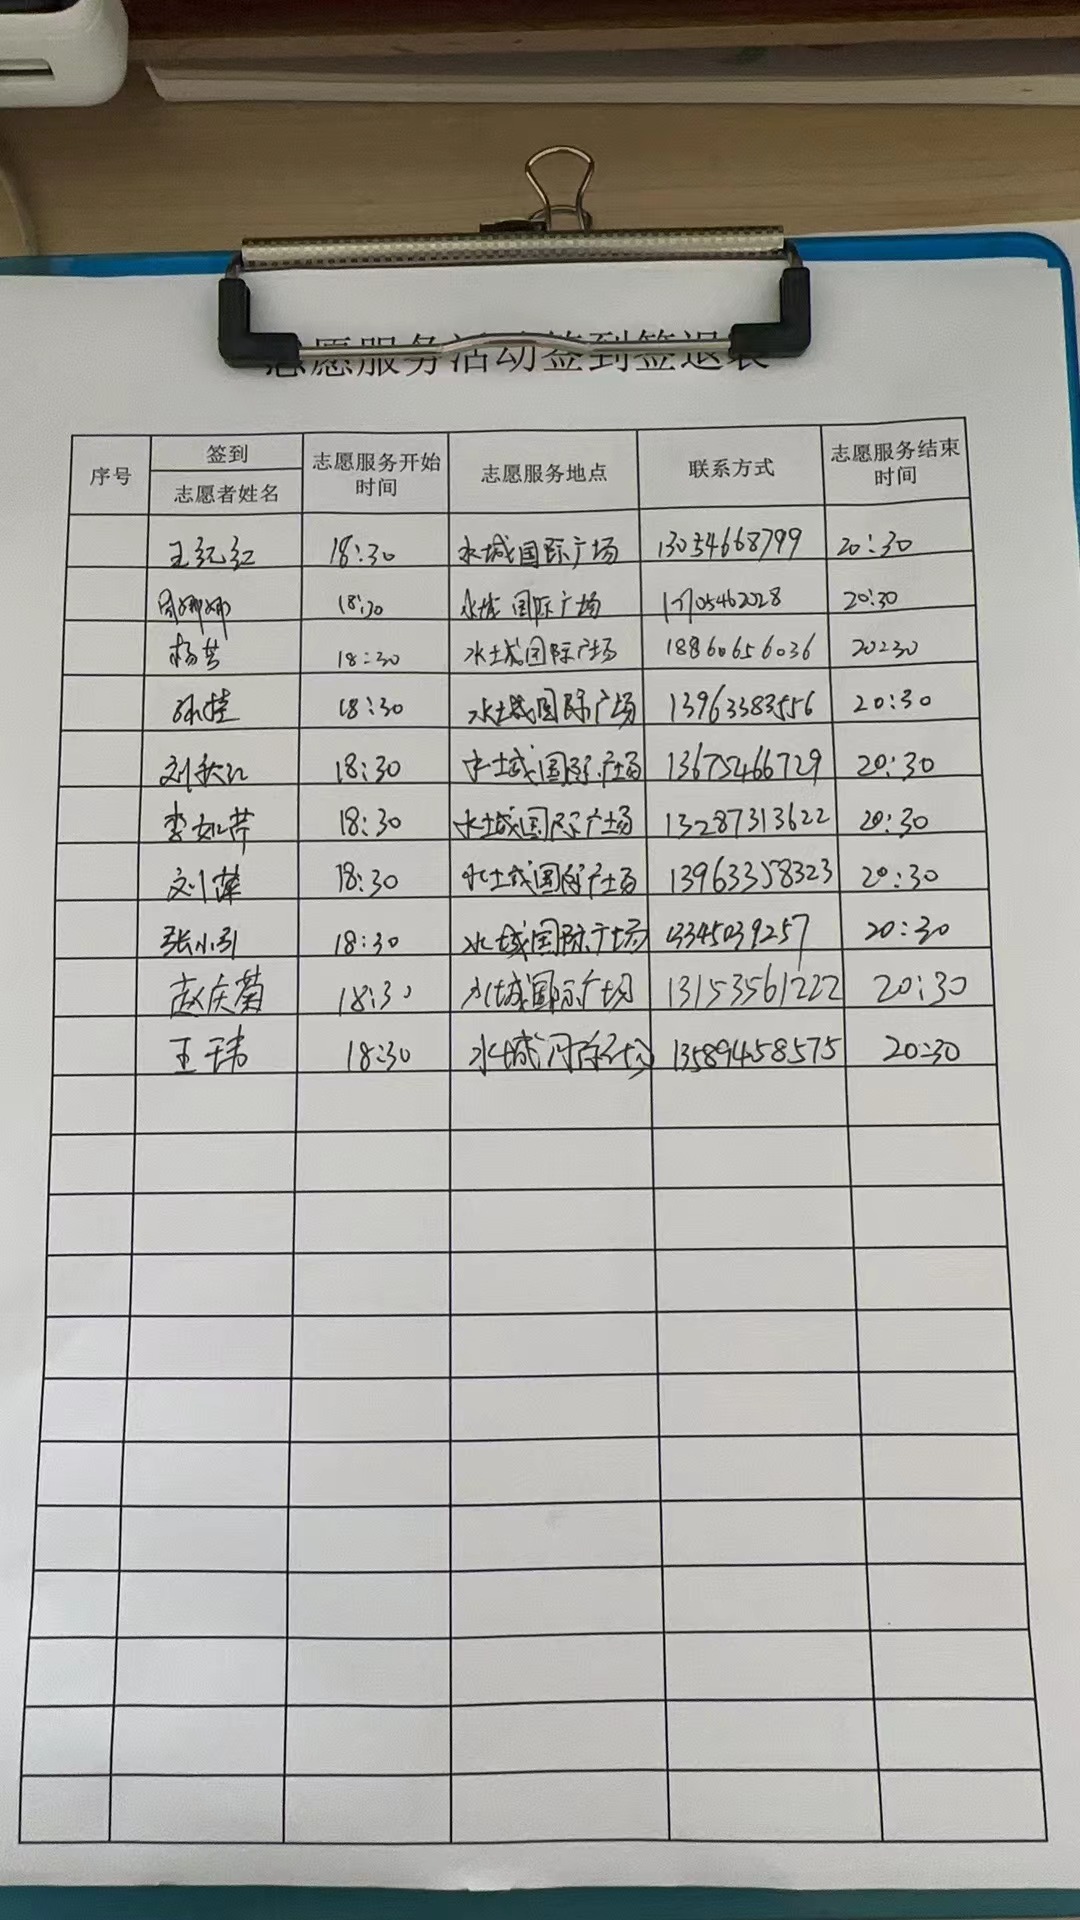 志愿服务活动签到签退表
序号 签到 志愿者姓名 志愿服务开始时间 志愿服务地点 联系方式 志愿服务结束时间
王纪红 18:30 水城国际广场 13054668799 20:30
周娜娜 18:30 水城国际广场 20:30
杨芸 18:30 水城国际广场 18860656036 20:30
孙桂 18:30 水城国际广场 13963383556 20:30
刘秋红 18:30 水城国际广场 13675466729 20:30
李如芹 18:30 水城国际广场 13287313622 20:30
刘萍 18:30 水城国际广场 13963358323 20:30
张小引 18:30 水城国际广场 20:30
赵庆菊 18:30 水城国际广场 13153561222 20:30
王玮 18:30 水城 13589458575 20:30